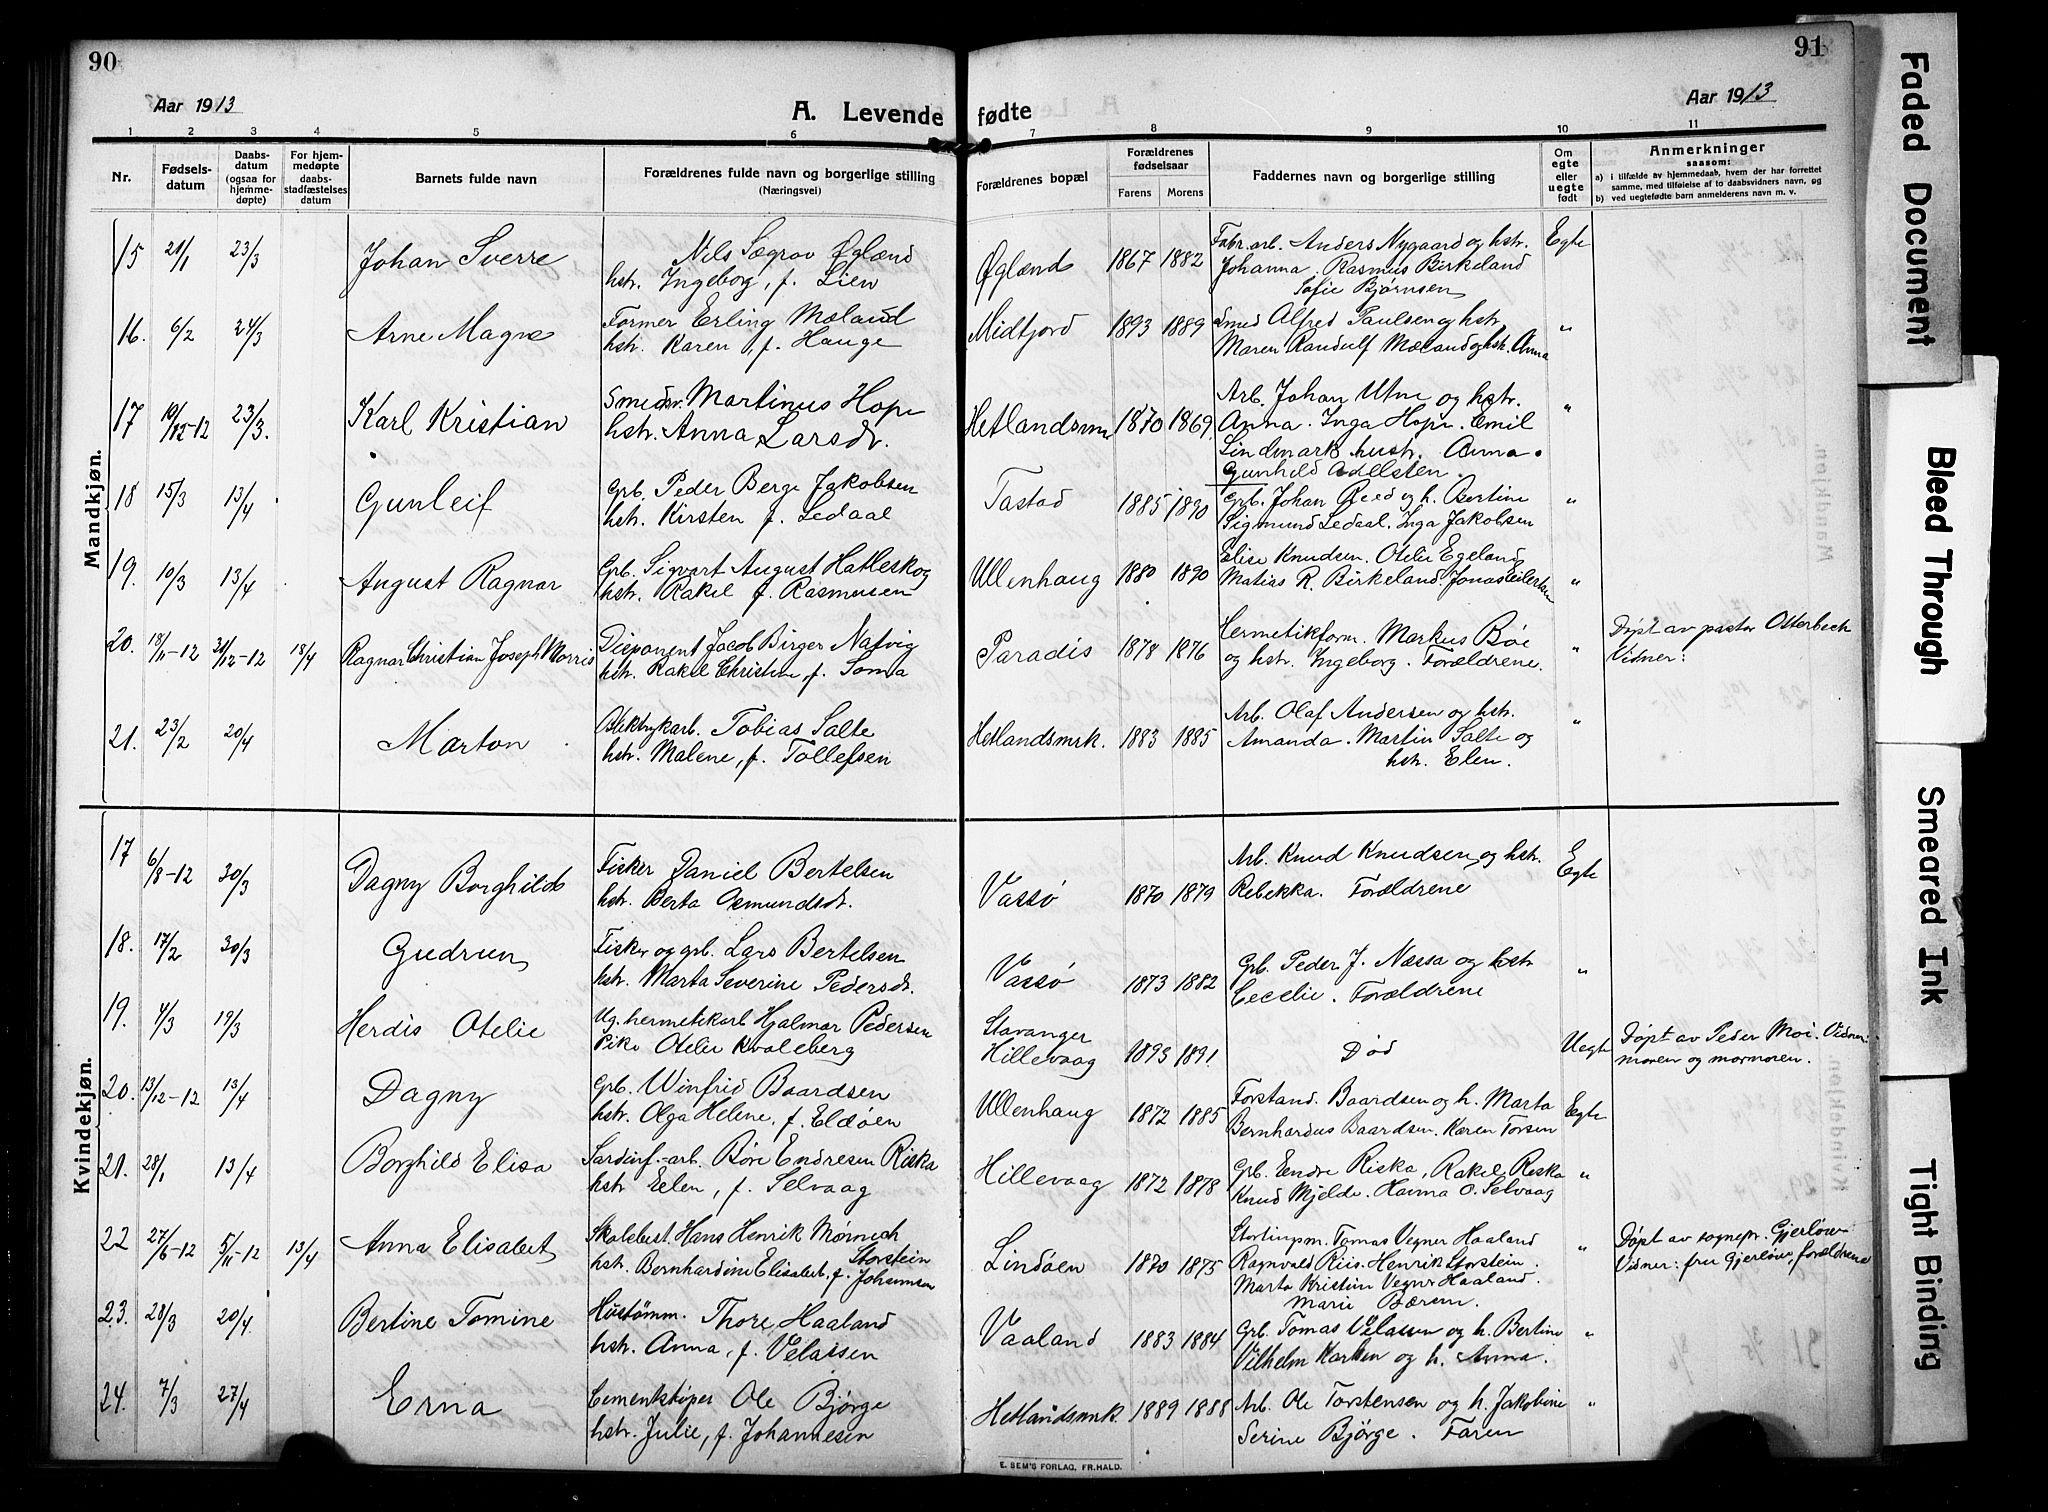 90
91
Aar 1913
A. Levende fødte
Aar 1913
1 2 3 4 5 6 7 8 9 10 11
Nr.
Fødselsdatum
Daabsdatum (ogsaa for hjemmedøpte)
For hjemmedøpte daabsstadfæstelses datum
Barnets fulde navn
Forældrenes fulde navn og borgerlige stilling
(Næringsvei)
Forældrenes bopæl
Forældrenes fødselsaar
Farens Morens
Faddernes navn og borgerlige stilling
Om egte eller uegte født
Anmerkninger
saasom:
a) i tilfælde av hjemmedaab, hvem der har forrettet
samme, med tilføielse af to daabsvidners navn, og
b) ved uegtefødte barn anmelderens navn m. v.
Mandkjøn.
15 21/1 23/3 Johan Sverre
Nils Sægrov Øglænd
hstr. Ingeborg, f. Lien
Øglænd 1867 1882
Fabr. arb. Anders Nygaard og hstr.
Johanna. Rasmus Birkeland
Sofie Bjørnsen
Egte
16. 6/2 24/3 Arne Magne
Former Erling Mæland
hstr. Karen, f. Hauge
Midtjord 1893 1889
Smed Alfred Paulsen og hstr.
Maren Randulf Mæland og hstr. Anna
"
17 19/12-12 23/3. Karl Kristian
Smedsv. Martinus Hope
hstr. Anna Larsdr.
Hetlandsmrk 1870 1869.
Arb. Johan Utne og hstr.
Anna. Inga Hope. Emil
Lindmark hustr. Anna.
Gunhild Adelsten.
"
18 15/3 13/4 Gunleif
Grb. Peder Berge Jakobsen
hstr. Kirsten f. Ledaal
Tastad 1885 1890
Grb. Johan Reed og h. Bertine
Sigmund Ledaal. Inga Jakobsen
"
19. 10/3 13/4 August Ragnar
Grb. Sigvart August Hatleskog
hstr. Rakel f. Rasmusen
Ullenhaug 1880 1890
Elise Knudsen. Otelie Egeland
Matias R. Birkeland. Jonas Eilertsen
"
20. 18/11-12 31/12-12 18/4 Ragnar Christian Joseph Morris
Disponent Jacob Birger Natvig
hstr. Rakel Christine, f. Soma
Paradis 1878 1876
Hermetikform. Markus Bøe
og hstr. Ingeborg. Forældrene.
"
Døpt av pastor Osterbech
Vidner:
21. 23/2 20/4 Marton
Tobias Salte
hstr. Malene, f. Tollefsen
Hetlandsmrk. 1883 1885
Arb. Olaf Andersen og hstr.
Amanda. Martin Salte og
hstr. Elen.
"
Kvindekjøn.
17 6/8-12 30/3 Dagny Borghild
Fisker Daniel Bertelsen
hstr. Berta Osmundsdr.
Vassø 1870 1879
Arb. Knud Knudsen og hstr.
Rebekka. Forældrene
Egte
18. 17/2 30/3 Gudrun
Fisker og grb. Lars Bertelsen
hstr. Marta Severine Pedersdr.
Vassø 1873 1882
Grb. Peder J. Næssa og hstr
Cecelie. Forældrene
"
19. 4/3 19/3 Herdis Otelie
Ug. hermetikarb Hjalmar Pedersen
Pike Otelie Kvaleberg
Stavanger
Hillevaag 1893 1891
Død
Uegte
Døpt av Peder Moi. Vidner:
moren og mormoren.
20. 13/12-12 13/4 Dagny
Grb. Winfrid Baardsen
hstr. Olga Helene, f. Eldøen
Ullenhaug 1872 1885
Forstand. Baardsen og h. Marta
Bernhardus Baardsen. Karen Torsen
Egte
21. 28/1 13/4 Borghild Elisa
Sardinf.-arb. Børe Endresen Riska
hstr Eelen, f. Selvaag
Hillevaag 1872 1878
Grb. Eendre Riska, Rakel Riska
Knud Mjelde. Hanna O. Selvaag
"
22 27/6-12 5/11-12 13/4 Anna Elisabet
Skolebest. Hans Henrik Mørnich
Storstein
hstr. Bernhardine Elisabet, f. Johannsen
Lindøen 1870 1875
Stortingsm. Tomas Vegner Haaland
Ragnvald Riis. Henrik Storstein.
Marta Kristine Vegner Haaland.
Marie Bærem.
"
Døpt av sognepr. Gjerløw
Vidner: fru Gjerløw, forældrene
23. 28/3 20/4 Bertine Tomine
Hustømm. Thore Haaland
hstr. Anna, f. Velassen
Vaaland 1883 1884
Grb. Tomas Velassen og h. Bertine
Vilhelm Karlsen og h. Anna.
"
24. 7/3 27/4 Erna
Cementstøper Ole Bjørge
hstr. Julie, f. Johannesen
Hetlandsmk. 1889 1888
Arb. Ole Torstensen og h. Jakobine
Serine Bjørge. Faren
"
E. SEM'S FORLAG, FR.HALD.
Faded Document
Bleed Through
Smeared Ink
Tight Binding